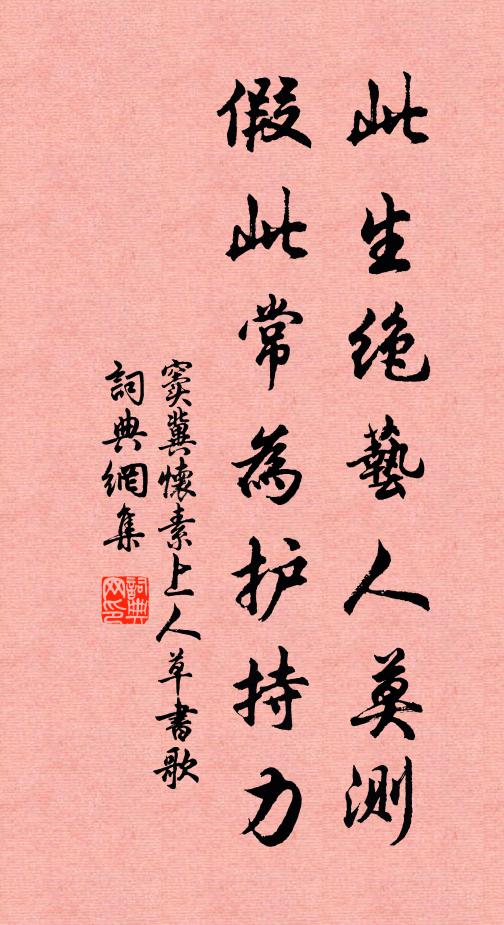 此生绝藝人莫測
假此常為护持力
窦冀懷素上人草書歌
詞典網集
詞典网印